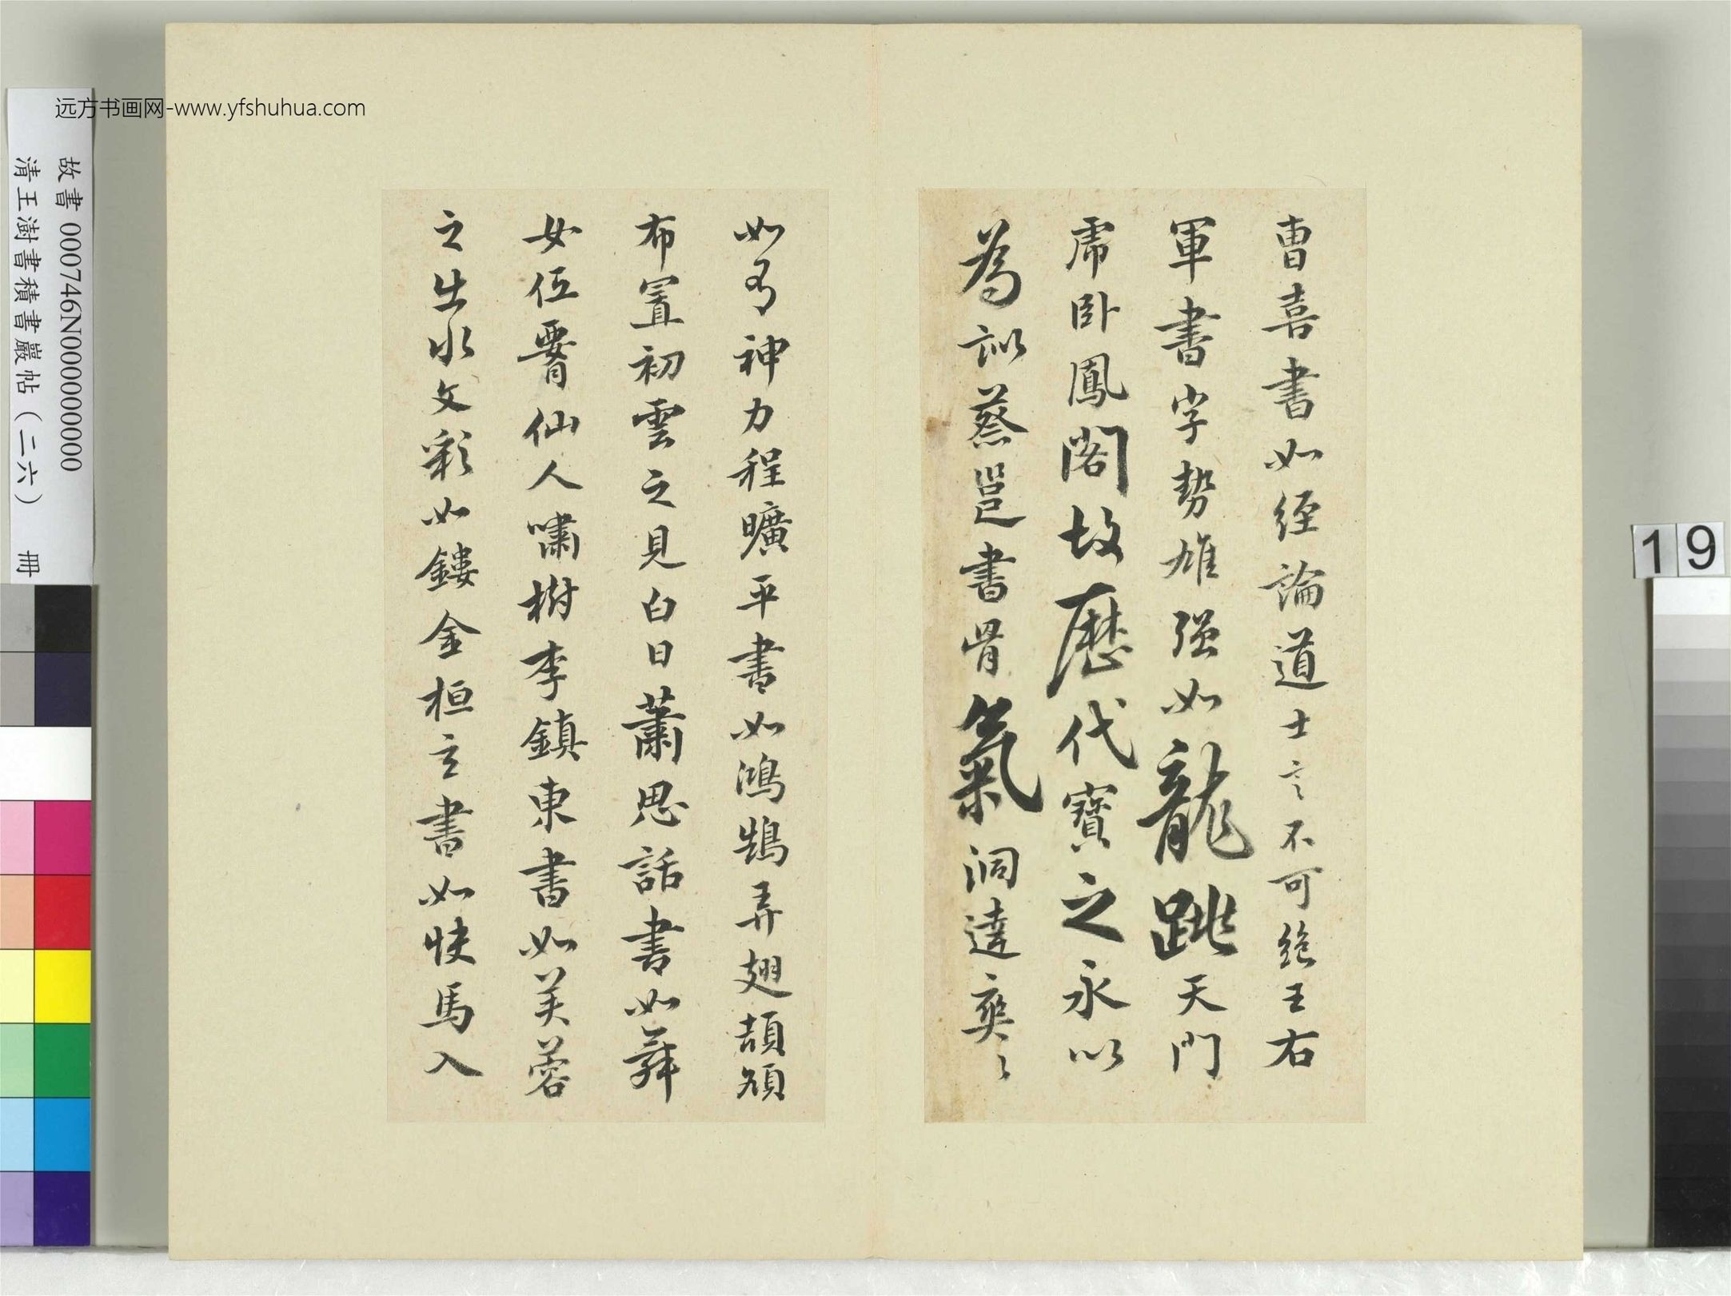 曹喜書如經論道士言不可絕王右
軍書字勢雄强如龍跳天門
虎卧鳳閣故歷代寶之永以
為訓蔡邕書骨氣洞達爽〻
如有神力程曠平書如鴻鵠弄翅頡頏
布置初雲之見白日蕭思話書如舞
女低䙅仙人嘯樹李鎮東書如芙蓉
之出水文彩如鏤金桓玄書如快馬入
远方书画网-www.yfshuhua.com
故書 000746N000000000
清王澍書積書巖帖（二六） 冊
19